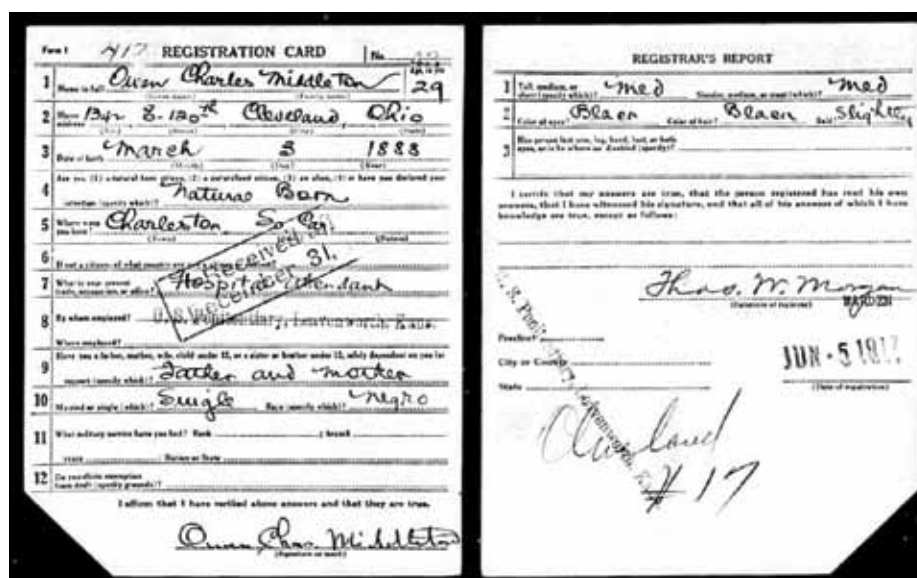 Form 1 417 REGISTRATION CARD No.
1 Name in full Owen Charles Middleton 29
(Given name) (Family name)
2 Home address E. 120th Cleveland, Ohio
(No.) (Street) (City) (State)
3 Date of birth March 3 1888
(Month) (Day) (Year)
Are you (1) a natural born citizen, (2) a naturalized citizen, (3) an alien, (4) or have you declared your
4 intention (specify which)? Natural Born
5 Where were you born? Charleston So. Car
(Town) (State) (Nation)
6 If not a citizen, of what country are you a citizen or subject?
Received at
December 31,
7 What is your present trade, occupation, or office? Hospital Attendant
8 By whom employed? U.S. Penitentiary, Leavenworth, Kans.
Where employed?
9 Have you a father, mother, wife, child under 12, or a sister or brother under 12, solely dependent on you for
support (specify which)? Father and mother
10 Married or single (which)? Single Race (specify which)? Negro
11 What military service have you had? Rank ; branch
years ; Nation or State
12 Do you claim exemption from draft (specify grounds)?
I affirm that I have verified above answers and that they are true.
Owen Chas. Middleton
(Signature or mark)
REGISTRAR'S REPORT
1 Tall, medium, or short (specify which)? Med Slender, medium, or stout (which)? Med
2 Color of eyes? Color of hair? Bald? Slightly
3 Has person lost arm, leg, hand, foot, or both eyes, or is he otherwise disabled (specify)?
I certify that my answers are true, that the person registered has read his own
answers, that I have witnessed his signature, and that all of his answers of which I have
knowledge are true, except as follows:
Thos. W. Morgan
(Signature of registrar)
Precinct
City or County
State
JUN - 5 1917
(Date of registration)
U. S. Penitentiary, Leavenworth, Kans.
Cleveland
# 17